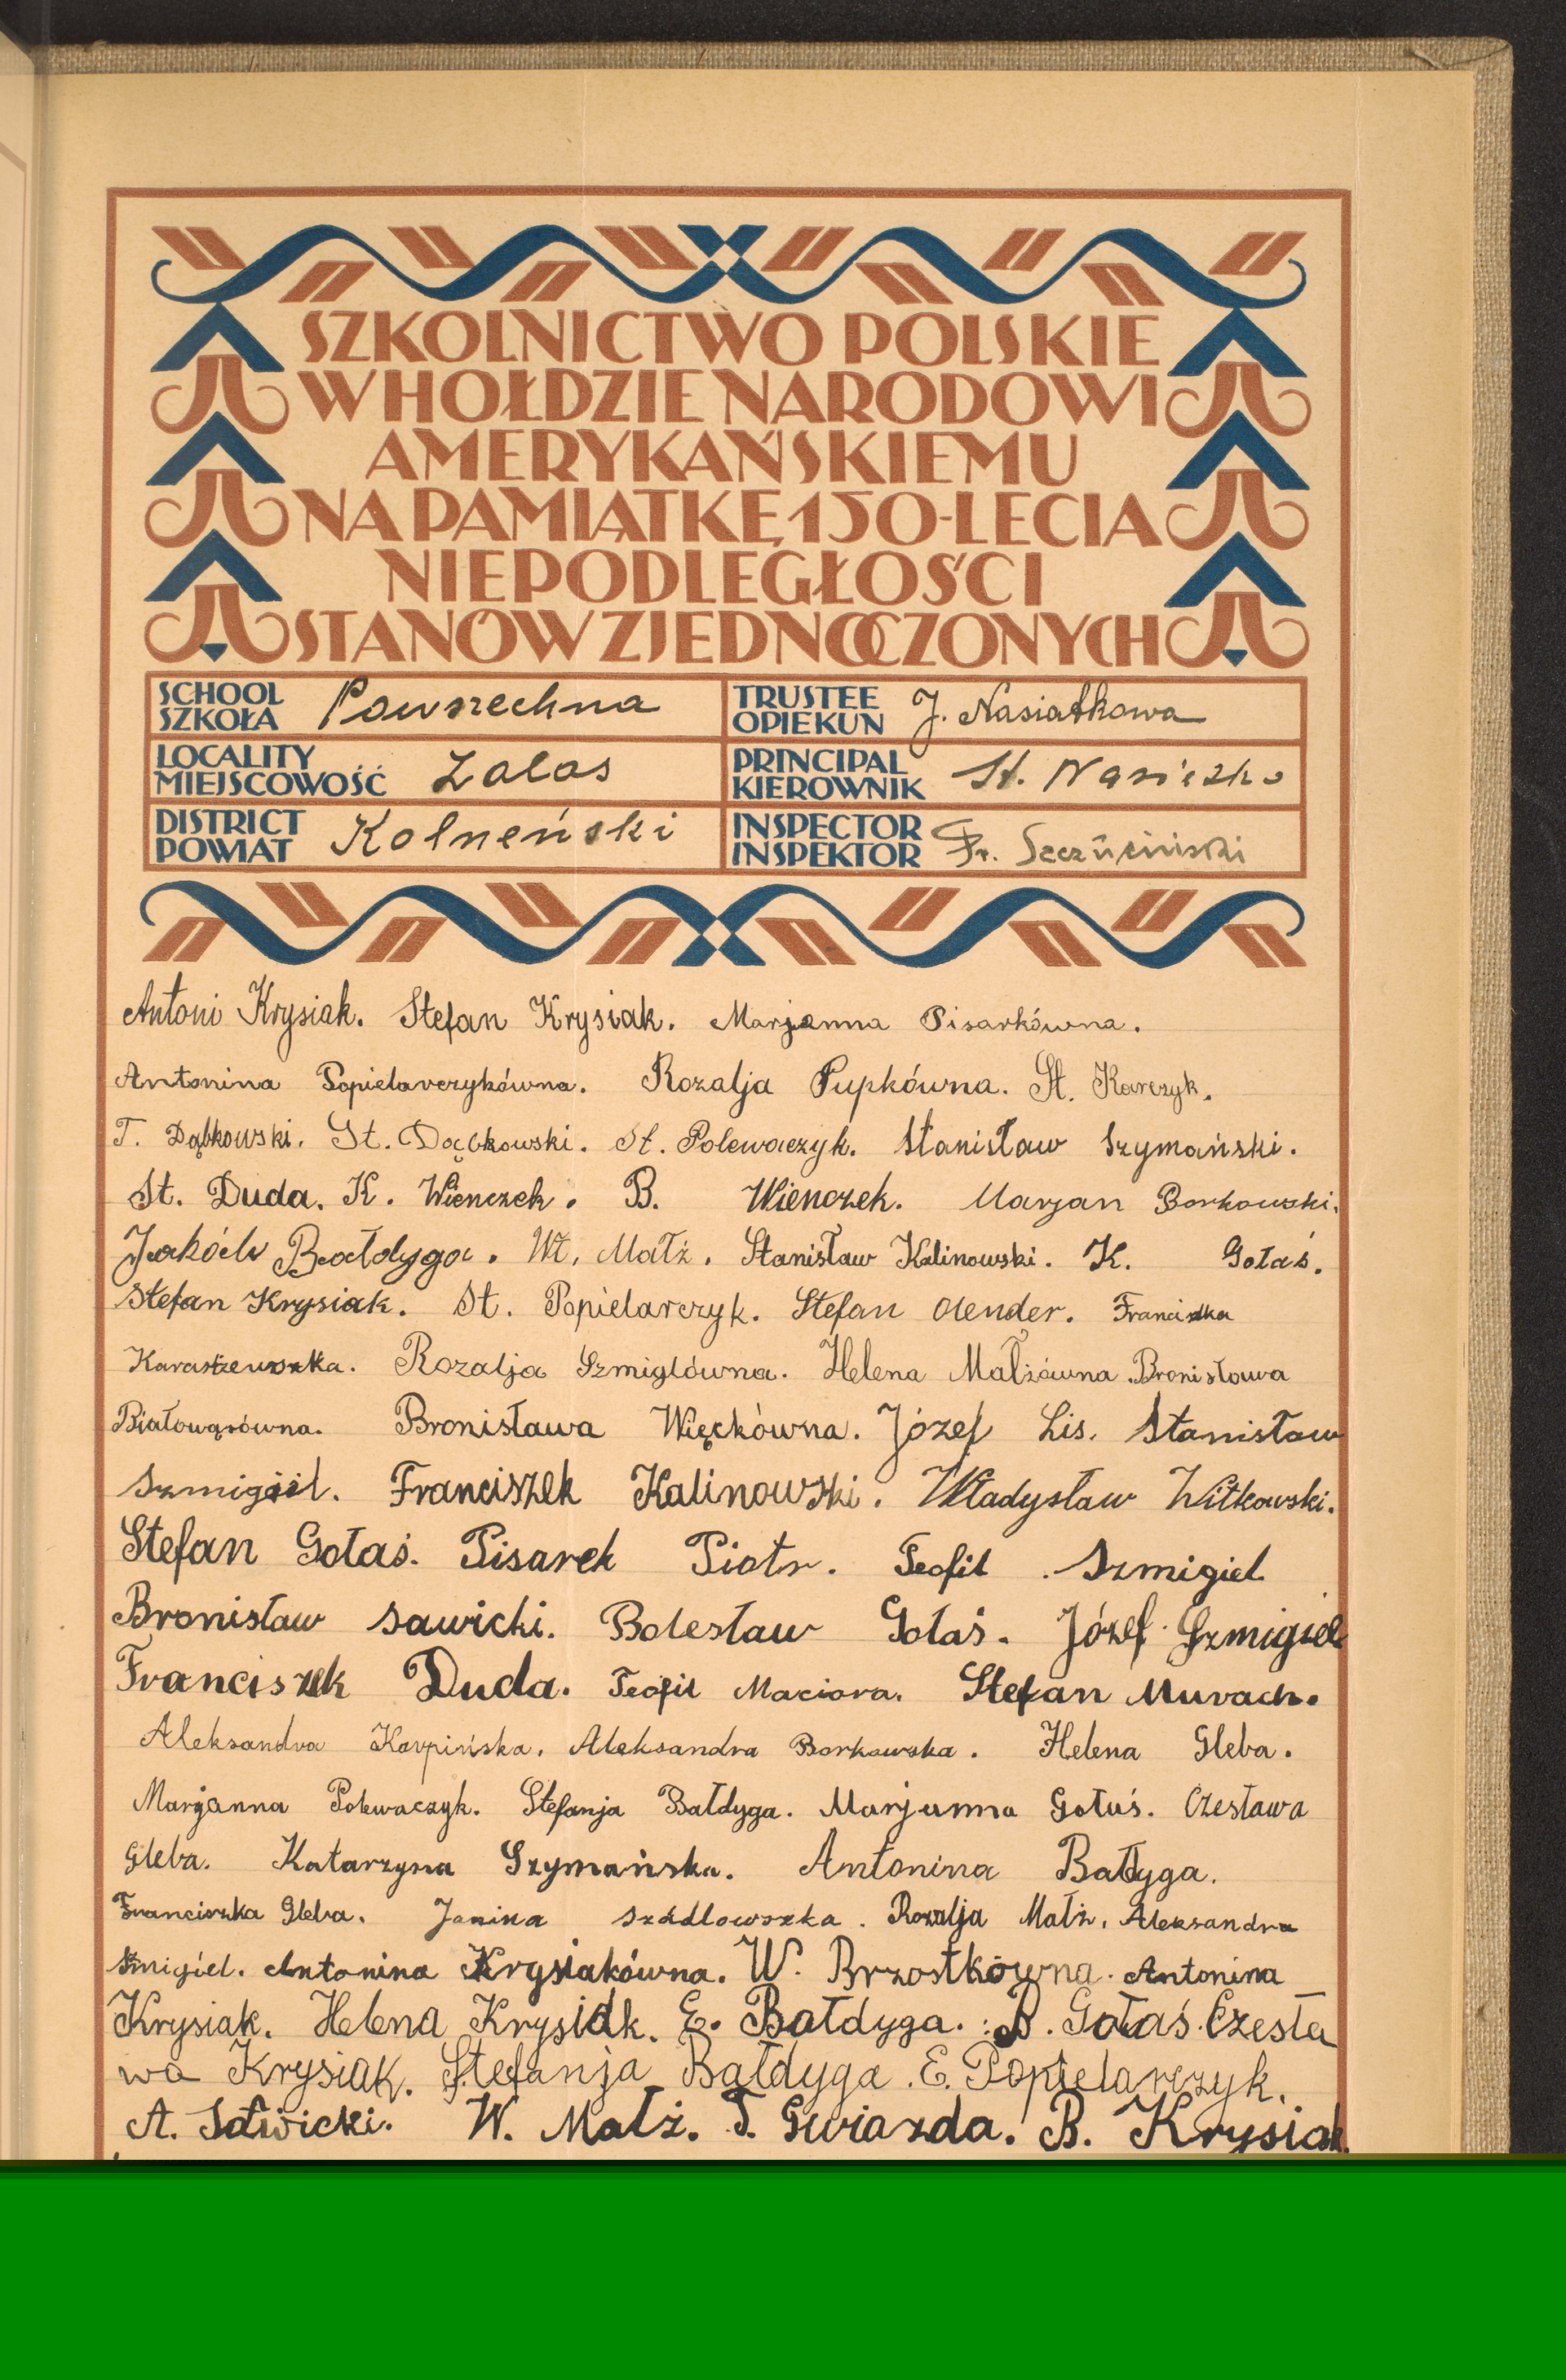 SZKOLNICTWO POLSKIE
W HOŁDZIE NARODOWI
AMERYKAŃSKIEMU
NA PAMIĄTKĘ 150-LECIA
NIEPODLEGŁOŚCI
STANÓW ZJEDNOCZONYCH
SCHOOL SZKOŁA Powszechna
TRUSTEE OPIEKUN J. Nasiatkowa
LOCALITY MIEJSCOWOŚĆ Zalas
PRINCIPAL KIEROWNIK St.
DISTRICT POWIAT Kolneński
INSPECTOR INSPEKTOR Fr.
Antoni Krysiak. Stefan Krysiak. Marjanna Pisarkówna.
Antonina Popielarczykówna. Rozalja Pupkówna. St. Karczyk.
T. Dąbkowski. St. Dąbkowski. St. Polewaczyk. Stanisław Szymański.
St. Duda. K. Wienczek. B. Wienczek. Marjan Borkowski.
Jakób Bałdyga. Wł. Małż. Stanisław Kalinowski. K. Gołaś.
Stefan Krysiak. St. Popielarczyk. Stefan Olender. Franciszka
Rozalja Szmiglówna. Helena Małżówna. Bronisława
Białowąsówna. Bronisława Więckówna. Józef Lis. Stanisław
Szmigiel. Franciszek Kalinowski. Władysław Witkowski.
Stefan Gołaś. Pisarek Piotr. Teofil Szmigiel
Bronisław Sawicki. Bolesław Gołaś. Józef Szmigiel
Franciszek Duda. Teofil Maciora. Stefan Murach.
Aleksandra Karpińska. Aleksandra Borkowska. Helena Gleba.
Marjanna Polewaczyk. Stefanja Bałdyga. Marjanna Gołaś. Czesława
Gleba. Katarzyna Szymańska. Antonina Bałdyga.
Franciszka Gleba. Janina Szadlowszka. Rozalja Małż. Aleksandra
Szmigiel. Antonina Krysiakówna. W. Brzostkówna. Antonina
Krysiak. Helena Krysiak. E. Bałdyga. B. Gołaś. Czesła
wa Krysiak. Stefanja Bałdyga. E. Popielarczyk.
A. Sawicki. W. Małż. T. Gwiazda. B. Krysiak